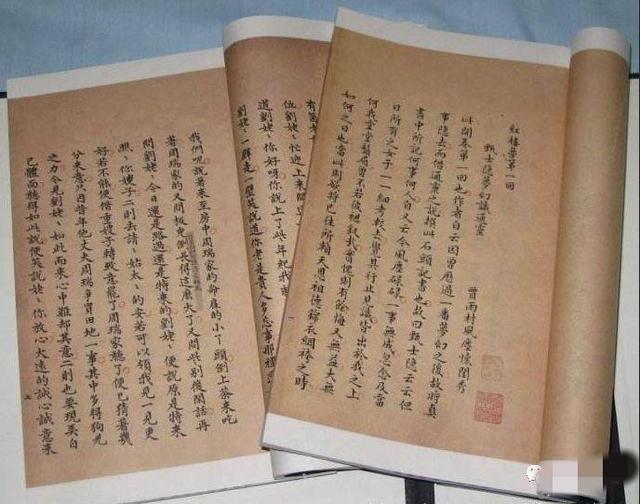 紅樓夢第一回
甄士隱夢幻識通靈
賈雨村風塵懷閨秀
此開卷第一回也作者自云因曾歷過一番夢幻之後故將真
事隱去而借通靈之說撰此石頭記書也故曰甄士隱云云但
書中所記何事何人自又云今風塵碌碌一事無成忽念及當
日所有之女子一一細考較去覺其行止見識皆出於我之上
何我堂堂鬚眉曾不若彼裙釵我實愧則有餘悔又無益大無
如何之日也當此則欲將已往所賴天恩祖德錦衣紈褲之時
位劉姥〻忙迎上來問
道劉姥〻你好呀你說上了些年起我
劉姥〻一壁走一壁笑說道你老是貴人多忘事那裡
我們呢說着來至房中周瑞家的命雇的小丫頭倒上茶來吃
着周瑞家的又問板兒倒長得這麽大了又問些別後閒話再
問劉姥〻今日還是路過還是特來的劉姥〻便說原是特來
瞧〻你嫂子二則去請〻姑太〻的安若可以領我見一見更
好若不能便借重嫂子轉致意罷了周瑞家聽了便已猜着幾
分來意只因昔年他丈夫周瑞爭買田地一事其中多得狗兒
之力今見劉姥〻如此而來心中難却其意二則也要現美自
己體面聽得如此說便笑說姥〻你放心大遠的誠心誠意來
七